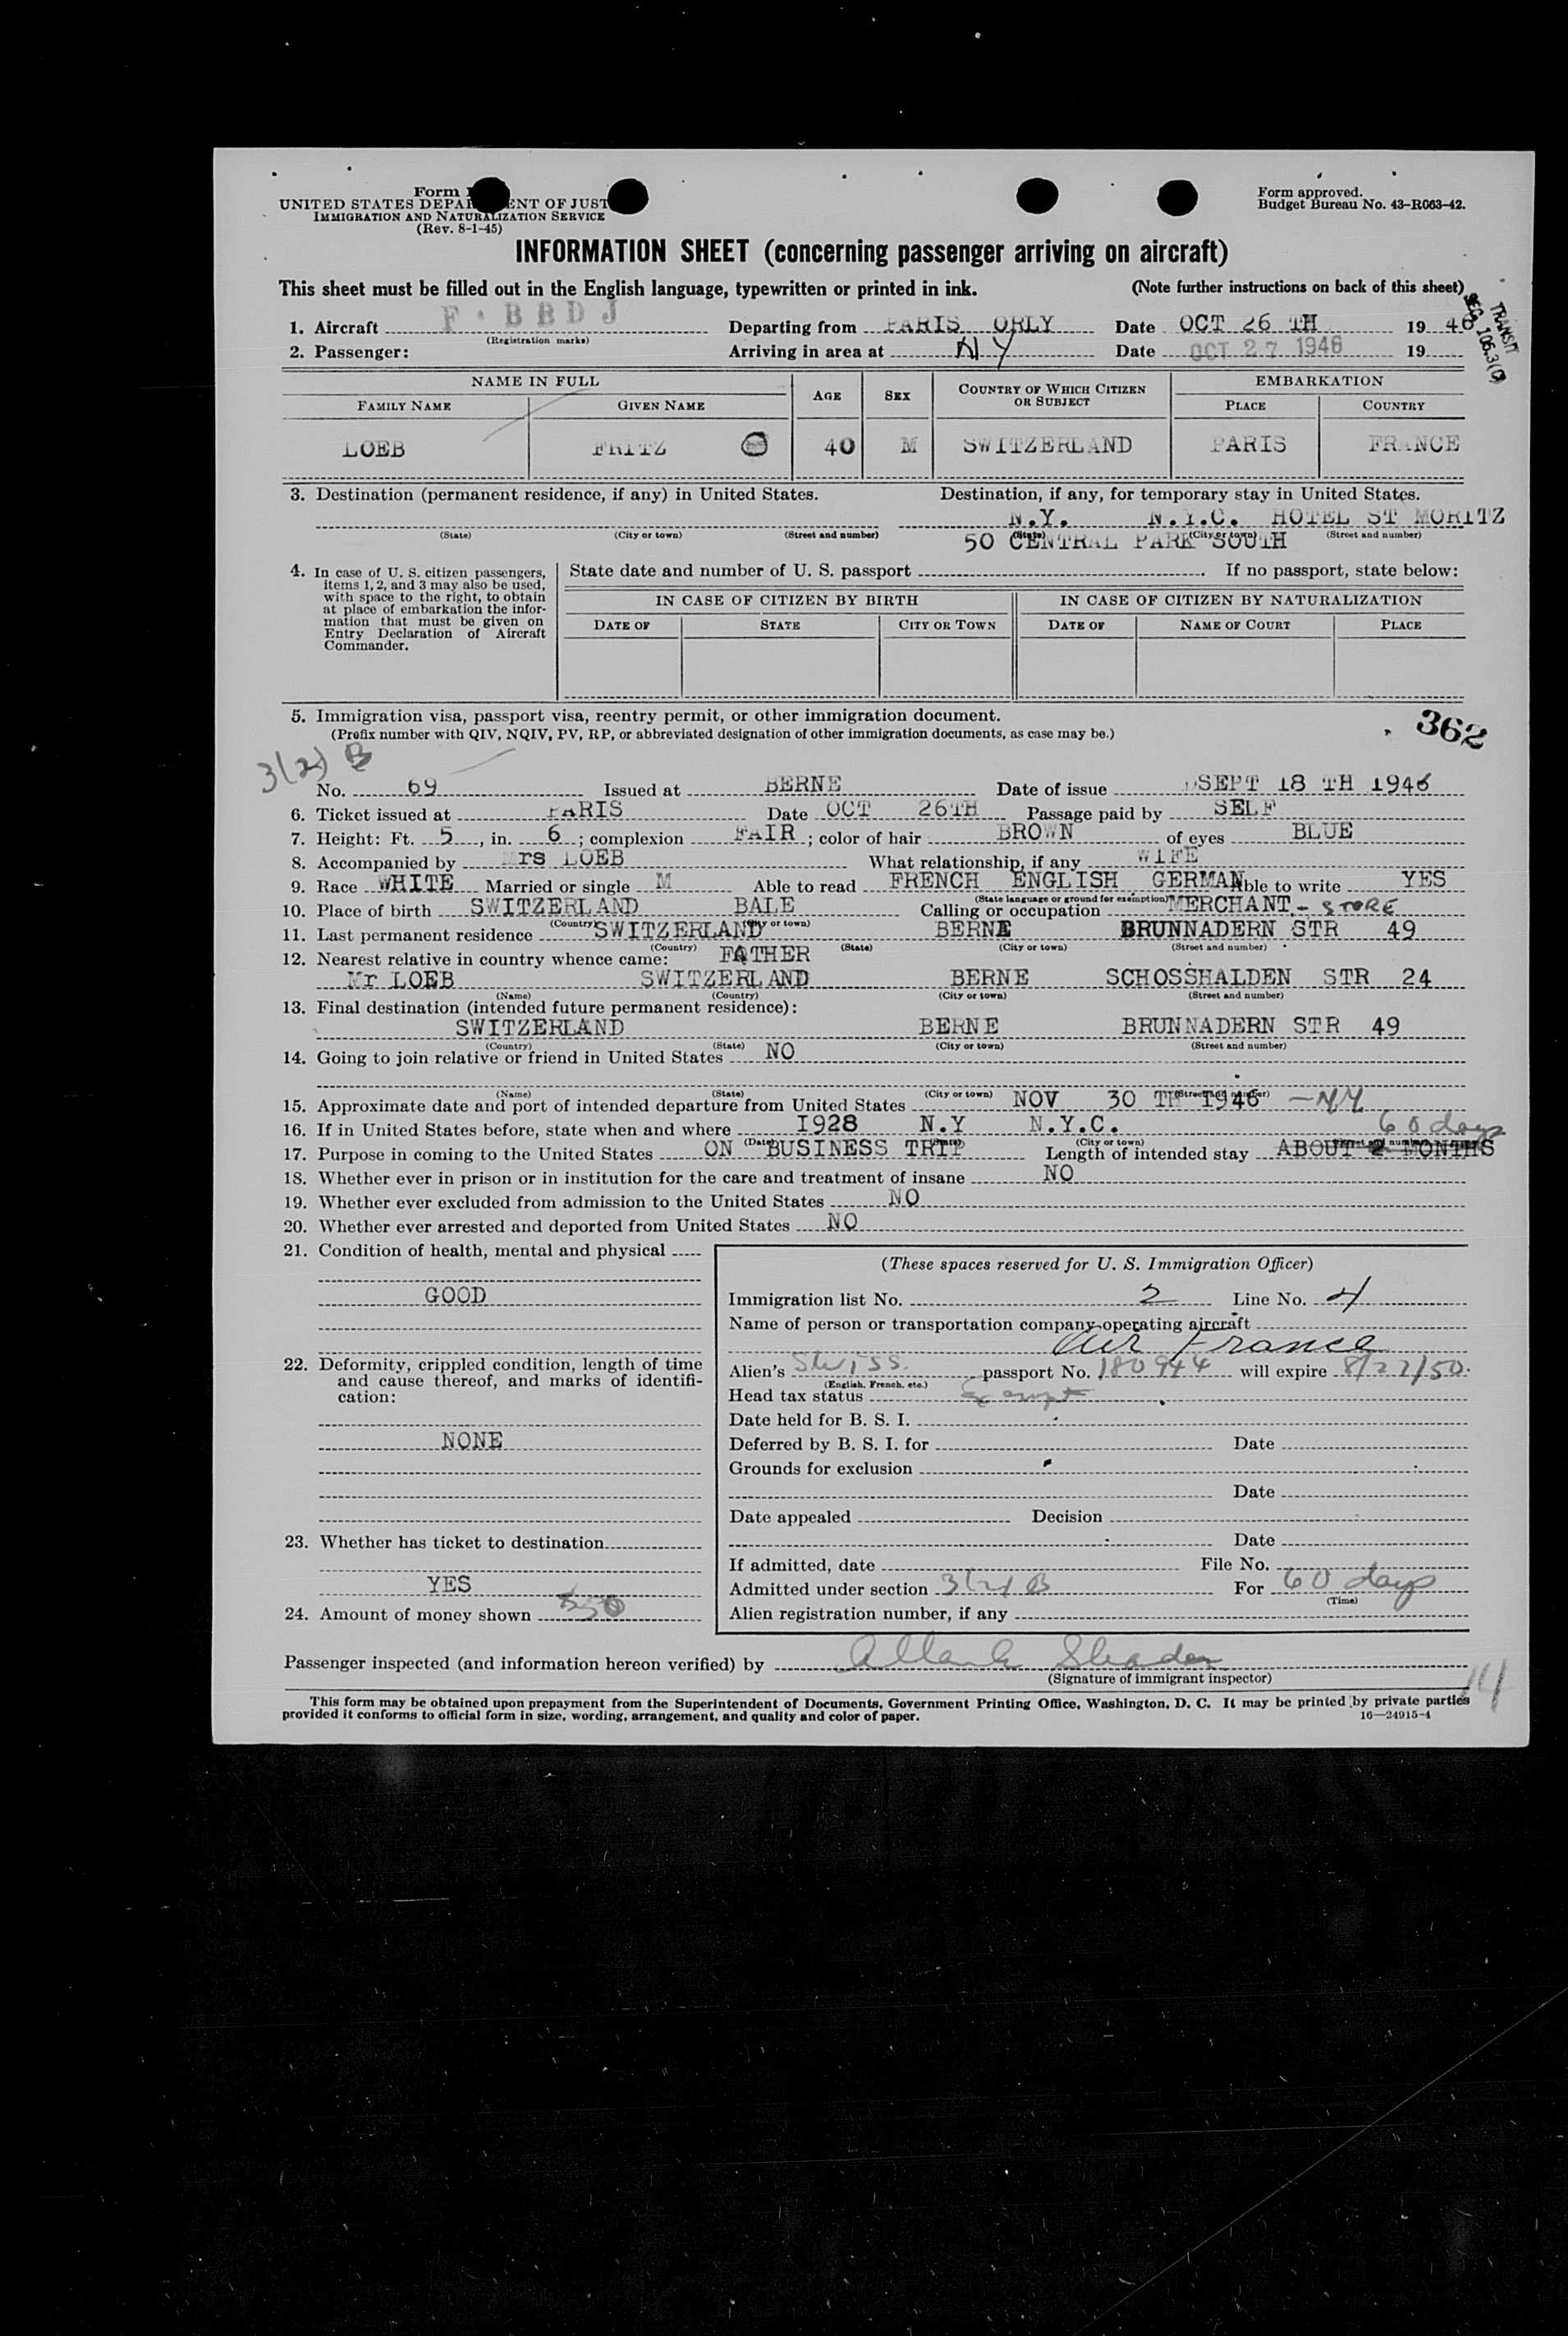 Form
UNITED STATES DEPA ENT OF JUST
IMMIGRATION AND NATURALIZATION SERVICE
(Rev. 8-1-45)
Form approved.
Budget Bureau No. 43-R063-42.
INFORMATION SHEET (concerning passenger arriving on aircraft)
This sheet must be filled out in the English language, typewritten or printed in ink. (Note further instructions on back of this sheet)
TRANSIT
1. Aircraft F·BBDJ Departing from PARIS ORLY Date OCT 26 TH 1946
(Registration marks)
2. Passenger: Arriving in area at NY Date OCT 27 1946 19
NAME IN FULL AGE SEX COUNTRY OF WHICH CITIZEN OR SUBJECT EMBARKATION
FAMILY NAME GIVEN NAME PLACE COUNTRY
LOEB FRITZ 40 M SWITZERLAND PARIS FRANCE
3. Destination (permanent residence, if any) in United States. Destination, if any, for temporary stay in United States.
N.Y. N.Y.C. HOTEL ST MORITZ
(State) (City or town) (Street and number) (State) (City or town) (Street and number)
50 CENTRAL PARK SOUTH
4. In case of U. S. citizen passengers, items 1, 2, and 3 may also be used, with space to the right, to obtain at place of embarkation the information that must be given on Entry Declaration of Aircraft Commander.
State date and number of U. S. passport If no passport, state below:
IN CASE OF CITIZEN BY BIRTH IN CASE OF CITIZEN BY NATURALIZATION
DATE OF STATE CITY OR TOWN DATE OF NAME OF COURT PLACE
5. Immigration visa, passport visa, reentry permit, or other immigration document.
(Prefix number with QIV, NQIV, PV, RP, or abbreviated designation of other immigration documents, as case may be.)
362
3(2) B
No. 69 Issued at BERNE Date of issue SEPT 18 TH 1946
6. Ticket issued at PARIS Date OCT 26TH Passage paid by SELF
7. Height: Ft. 5, in. 6; complexion FAIR; color of hair BROWN of eyes BLUE
8. Accompanied by Mrs LOEB What relationship, if any WIFE
9. Race WHITE Married or single M Able to read FRENCH ENGLISH GERMAN Able to write YES
(State language or ground for exemption)
10. Place of birth SWITZERLAND BALE Calling or occupation MERCHANT - STORE
(Country) (City or town)
11. Last permanent residence SWITZERLAND BERNE BRUNNADERN STR 49
(Country) (State) (City or town) (Street and number)
12. Nearest relative in country whence came: FATHER
Mr LOEB SWITZERLAND BERNE SCHOSSHALDEN STR 24
(Name) (Country) (City or town) (Street and number)
13. Final destination (intended future permanent residence):
SWITZERLAND BERNE BRUNNADERN STR 49
(Country) (State) (City or town) (Street and number)
14. Going to join relative or friend in United States NO
(Name) (State) (City or town) (Street and number)
15. Approximate date and port of intended departure from United States NOV 30 TH 1946 - NY
16. If in United States before, state when and where 1928 N.Y N.Y.C.
(Date) (State) (City or town) (Street and number)
60 days
17. Purpose in coming to the United States ON BUSINESS TRIP Length of intended stay ABOUT 2 MONTHS
18. Whether ever in prison or in institution for the care and treatment of insane NO
19. Whether ever excluded from admission to the United States NO
20. Whether ever arrested and deported from United States NO
21. Condition of health, mental and physical
GOOD
22. Deformity, crippled condition, length of time and cause thereof, and marks of identification:
NONE
23. Whether has ticket to destination
YES
24. Amount of money shown $50
(These spaces reserved for U. S. Immigration Officer)
Immigration list No. 2 Line No. 4
Name of person or transportation company operating aircraft
Air France
Alien's Swiss passport No. 180944 will expire 8/22/50
(English, French, etc.)
Head tax status Exempt
Date held for B. S. I.
Deferred by B. S. I. for Date
Grounds for exclusion
Date
Date appealed Decision
Date
If admitted, date File No.
Admitted under section 3(2) B For 60 days
(Time)
Alien registration number, if any
Passenger inspected (and information hereon verified) by
(Signature of immigrant inspector)
14
This form may be obtained upon prepayment from the Superintendent of Documents, Government Printing Office, Washington, D. C. It may be printed by private parties
provided it conforms to official form in size, wording, arrangement, and quality and color of paper. 16—24915-4